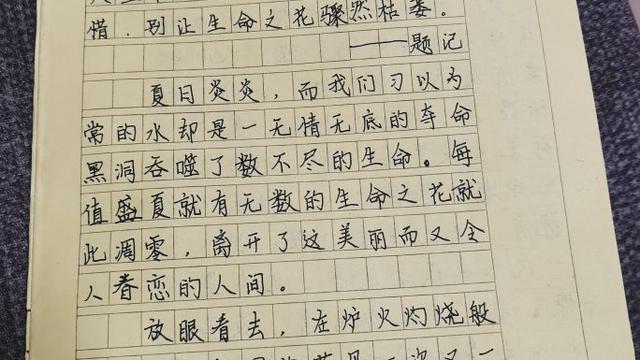 惜，别让生命之花骤然枯萎。
——题记
夏日炎炎，而我们习以为
常的水却是一无情无底的夺命
黑洞吞噬了数不尽的生命。每
值盛夏就有无数的生命之花就
此凋零，离开了这美丽而又令
人眷恋的人间。
放眼看去，在炉火灼烧般